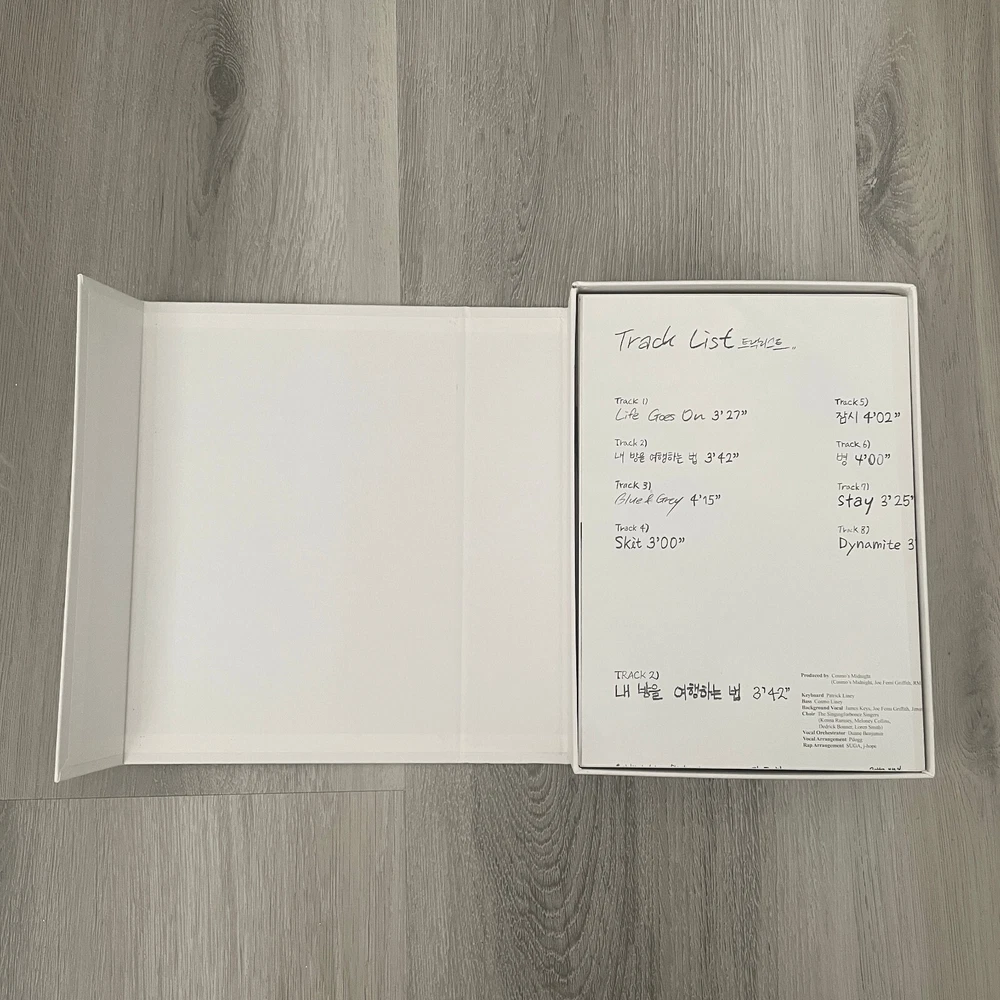 Track List 트랙리스트..
Track 1)
Life Goes On 3'27"
Track 2)
내 방을 여행하는 법 3'42"
Track 3)
Blue & Grey 4'15"
Track 4)
Skit 3'00"
Track 5)
잠시 4'02"
Track 6)
병 4'00"
Track 7)
stay 3'25"
Track 8)
Dynamite 3'
TRACK 2)
내 방을 여행하는 법 3'42"
Produced by Cosmo's Midnight
(Cosmo's Midnight, Joe Femi Griffith, RM
Keyboard Patrick Liney
Bass Cosmo Liney
Background Vocal James Keys, Joe Femi Griffith,
Choir The Singing Singers
(Kenna Ramsey, Meloney Collins,
Dedrick Bonner, Loren Smith)
Vocal Orchestrator Duane Benjamin
Vocal Arrangement Pdogg
Rap Arrangement SUGA, j-hope